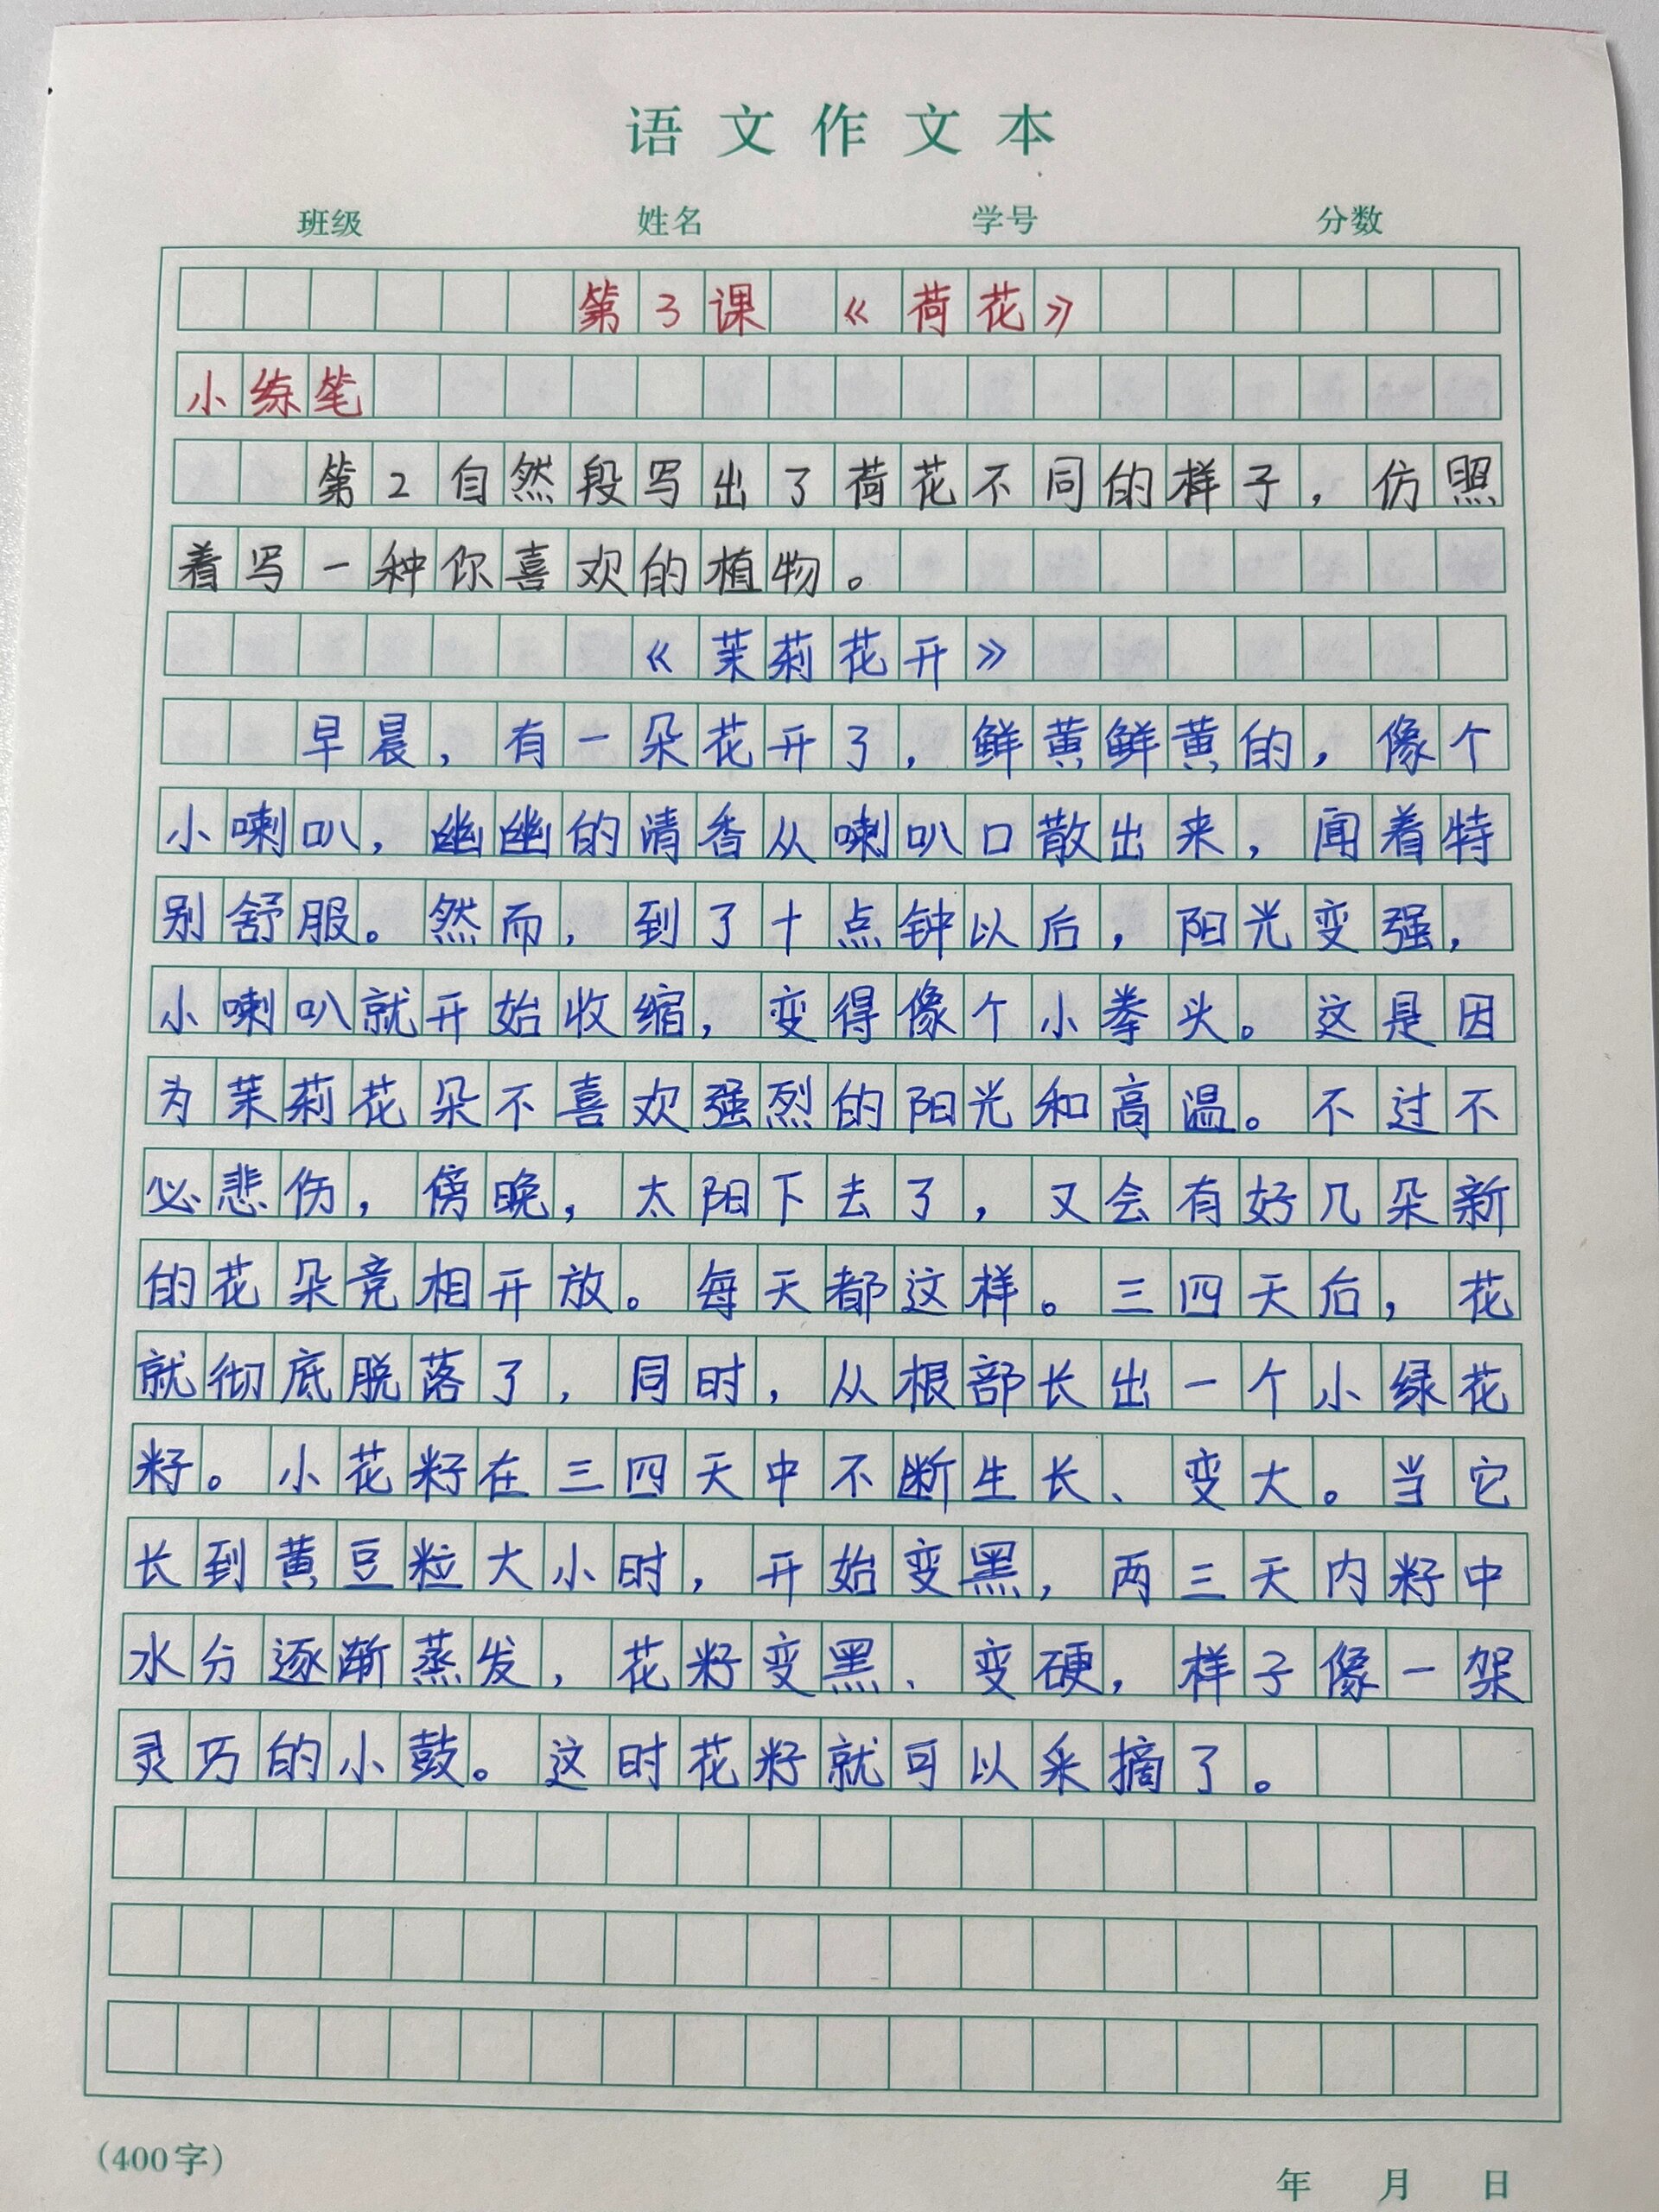 语文作文本
班级 姓名 学号 分数
第3课《荷花》
小练笔
第2自然段写出了荷花不同的样子，仿照
着写一种你喜欢的植物。
《茉莉花开》
早晨，有一朵花开了，鲜黄鲜黄的，像个
小喇叭，幽幽的清香从喇叭口散出来，闻着特
别舒服。然而，到了十点钟以后，阳光变强，
小喇叭就开始收缩，变得像个小拳头。这是因
为茉莉花朵不喜欢强烈的阳光和高温。不过不
必悲伤，傍晚，太阳下去了，又会有好几朵新
的花朵竞相开放。每天都这样。三四天后，花
就彻底脱落了，同时，从根部长出一个小绿花
籽。小花籽在三四天中不断生长、变大。当它
长到黄豆粒大小时，开始变黑，两三天内籽中
水分逐渐蒸发，花籽变黑、变硬，样子像一架
灵巧的小鼓。这时花籽就可以采摘了。
(400字)
年 月 日